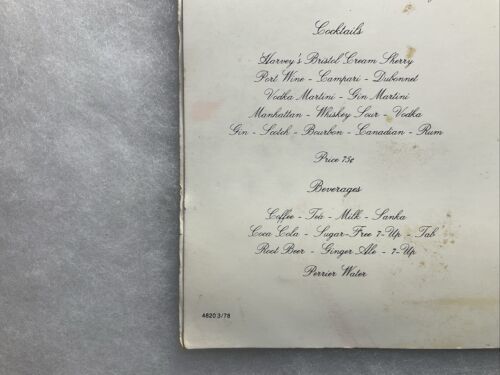 Cocktails
Harvey's Bristol Cream Sherry
Port Wine - Campari - Dubonnet
Vodka Martini - Gin Martini
Manhattan - Whiskey Sour - Vodka
Gin - Scotch - Bourbon - Canadian - Rum
Price 75¢
Beverages
Coffee - Tea - Milk - Sanka
Coca Cola - Sugar-Free 7-Up - Tab
Root Beer - Ginger Ale - 7-Up
Perrier Water
4820 3/78